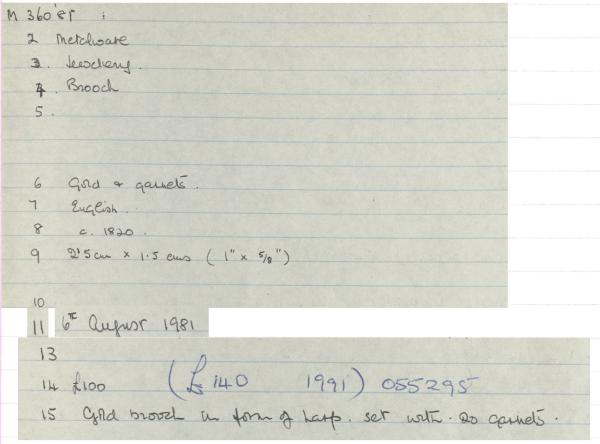 M 360'81 :
2 Metalware
3. Jewellery.
4. Brooch
5.
6 Gold & garnets.
7 English.
8 c. 1820.
9 2.5cm × 1.5 cms ( 1" × 5/8" )
10
11 6th August 1981
13
14 £100 (£140 1991) 055295
15 Gold brooch in form of harp. set with. 20 garnets.